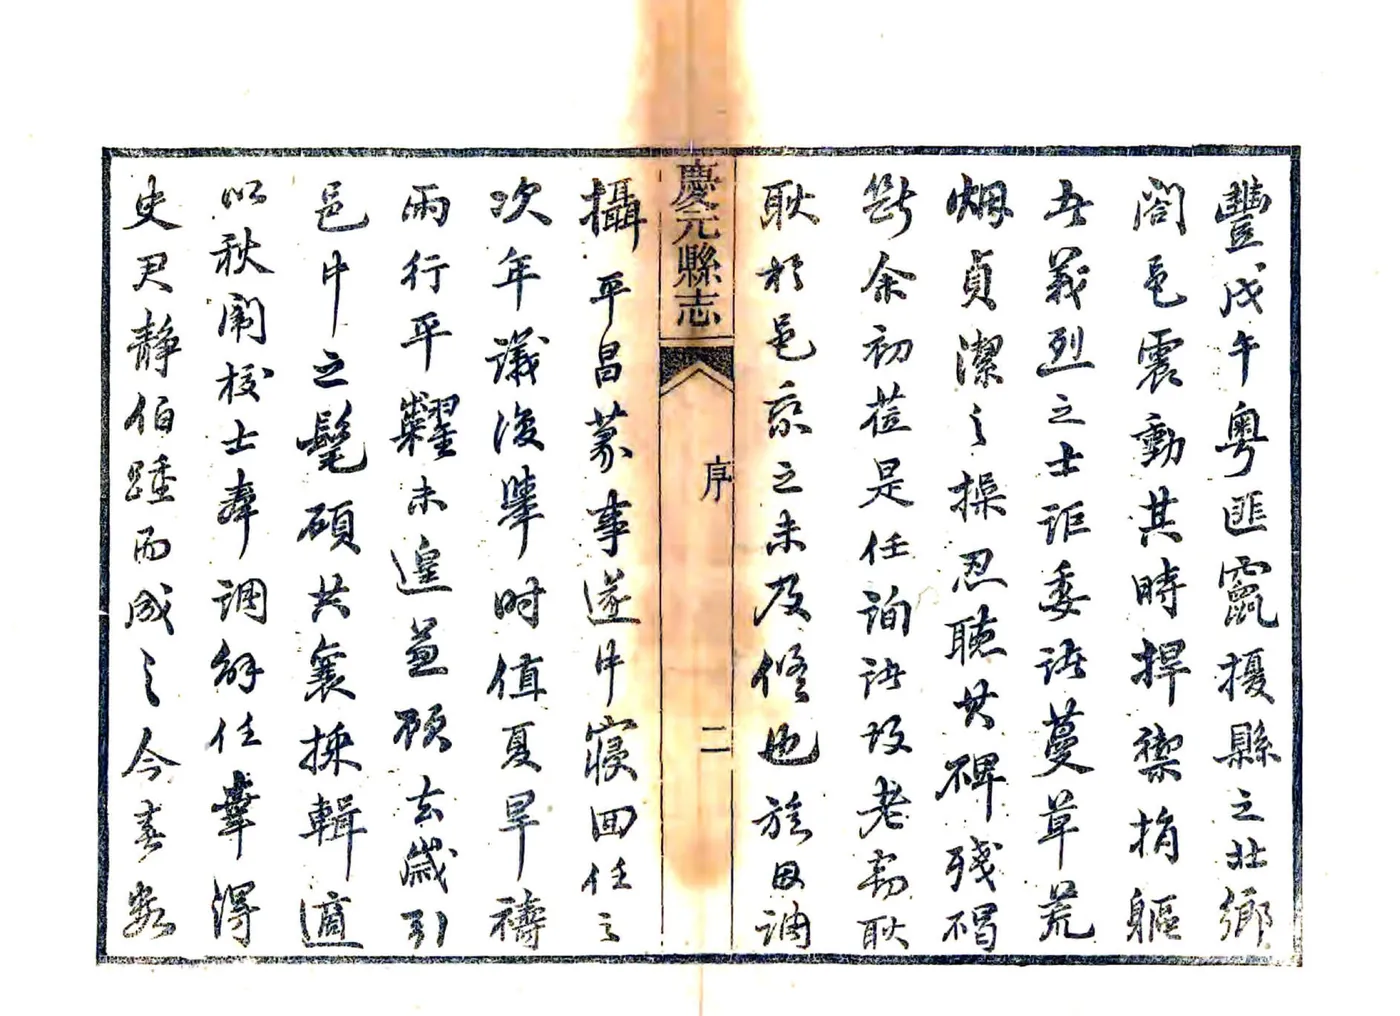 豐戊午粵匪竄擾縣之北鄉
闔邑震動其時捍禦捐軀
者義烈之士詎委諸蔓草荒
烟貞潔之操忍聽其碑殘碣
斷余初莅是任詢諸故老竊耿
耿於邑乘之未及修也旋因調
慶元縣志
序
二
攝平昌篆事遂中寢回任之
次年議復舉時值夏旱禱
雨行平糶未遑兼顧去歲引
邑中之髦碩共襄採輯適
以秋闈校士奉調卸任幸得
史君靜伯踵而成之今春